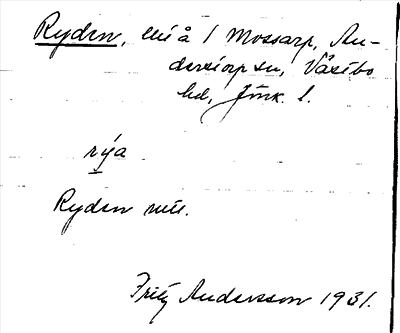 Ryden, lii å / Mossarp, An-
derstorp sn, Västbo
hd, Jönk. l.
rýa
Ryden
Fritz Andersson 1931.